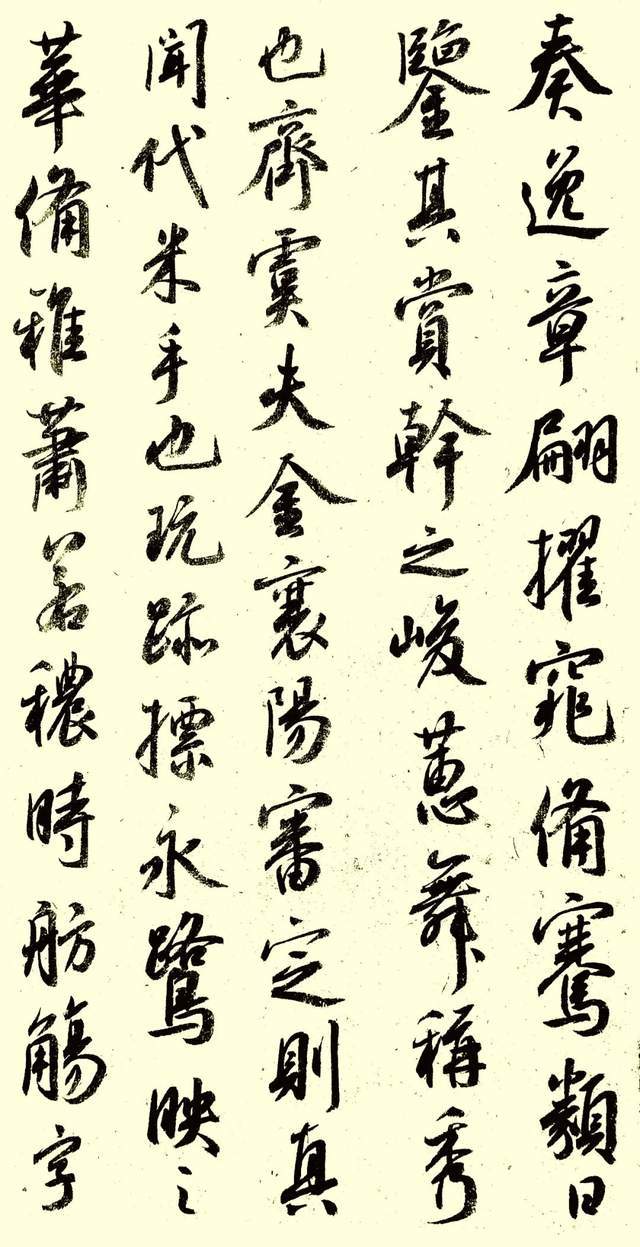 奏逸章翩擢窕備騫類日
鑒其賞幹之峻蕙舞稱秀
也齋虞夫金襄陽審定則真
聞代米手也玩跡摽永鷺映之
華備雅蕭若穠時舫觴字